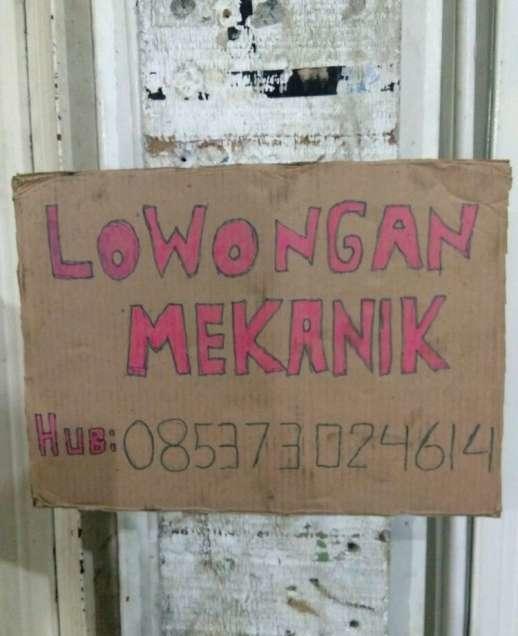 LOWONGAN
MEKANIK
HUB: 085373024614